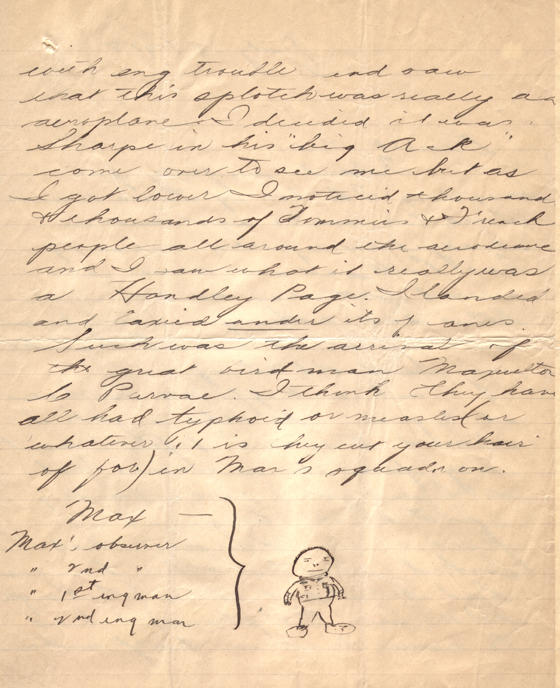 with eng trouble and saw
that this splotch was really an
aeroplane. I decided it was
Sharpe in his "big Ack"
come over to see me but as
I got lower I noticed thousand
& thousands of Tommies & French
people all around the aerodrome
and I saw what it really was
a Handley Page. I landed
and taxied under its
Such was the arrival of
the great bird man
to . I think they have
all had typhoid or measles (or
whatever it is they cut your hair
of for) in Max's squadron.
Max —
Max's observer
" 2nd "
" 1st eng man
" 2nd eng man